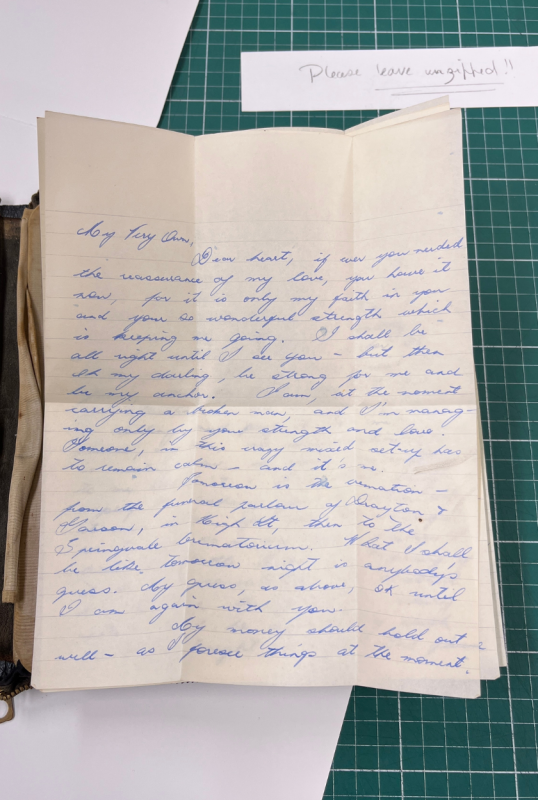 Please leave unzipped!!
My Very Own,
Dear heart, if ever you needed
the reassurance of my love, you have it
now, for it is only my faith in you
and your so wonderful strength which
is keeping me going. I shall be
all right until I see you – but then
oh my darling, be strong for me and
be my anchor. I am, at the moment
carrying a broken man, and I'm manag-
ing only by your strength and love.
Someone, in this crazy mixed set-up has
to remain calm – and it's me.
Tomorrow is the cremation –
from the funeral parlour of Drayton &
Garson, in High St, then to the
Springvale Crematorium. What I shall
be like tomorrow night is anybody's
guess. My guess, as above, OK until
I am again with you.
My money should hold out
well – as I foresee things at the moment.